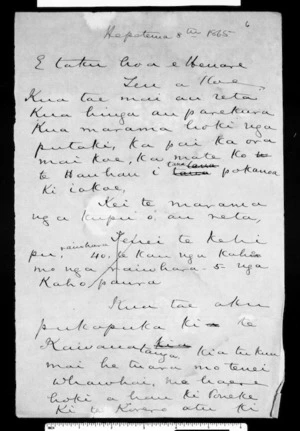 6
Hepetema 8th 1865
E taku hoa e Henare
Tena Koe,
Kua tae mai au reta
Kua hinga au parekura
Kua marama hoki nga
putake, ka pai ka ora
mai koe, ka mate ko te
te Hauhau i tana tana pokanoa
ki iakoe,
Kei te marama
nga kupu o au reta,
Tenei te kehi
pu, rainhara 40. e kau nga kaho
mo nga rainhara. 5. nga
Kaho paura
Kua tae aku
pukapuka ki te
Kaiwana kia tukua
mai he tuara mo tenei
whawhai, me haere
hoki a hau ki Poneke
Ki te Korero atu ki